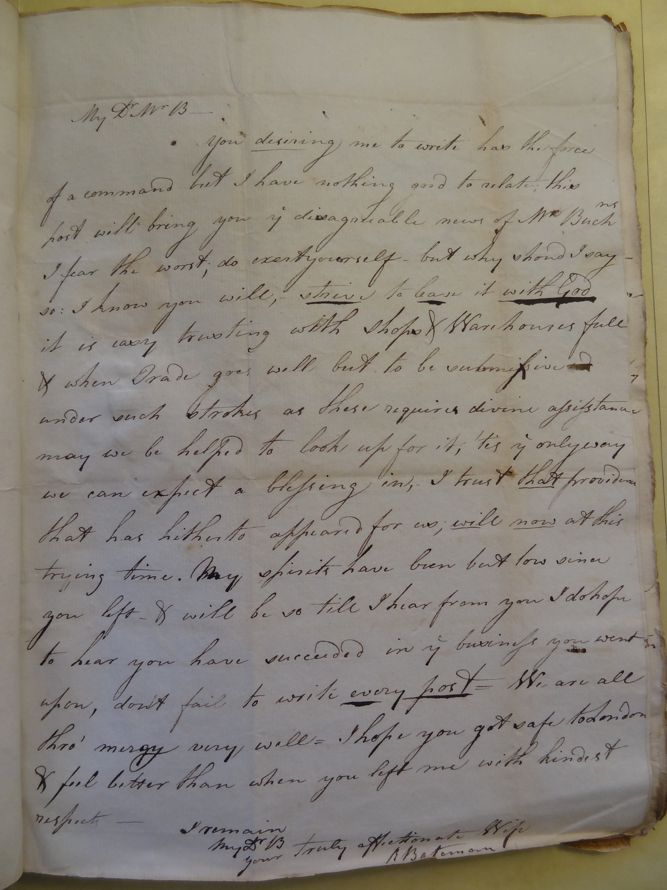 My Dr Mr B
you desiring me to write has the force
of a command but I have nothing good to relate; this
post will bring you ÿ disagreable news of Mr Buchns
I fear the worst; do exert yourself - but why shoud I say -
so: I know you will; strive to leave it with God
it is easy trusting with shops & Warehouses full
& when Trade goes well but to be submissive
under such strokes as these requires divine assistance
may we be helped to look up for it; 'tis ÿ only way
we can expect a blessing in; I trust that providence
that has hitherto appeared for us; will now at this
trying time. My spirits have been but low since
you left - & will be so till I hear from you I do hope
to hear you have succeeded in ÿ business you went
upon, don't fail to write every post = We are all
thro' mercy very well = I hope you got safe to London
& feel better than when you left me with kindest
respect -
I remain
My Dr B
your truly affectionate Wife
A Bateman